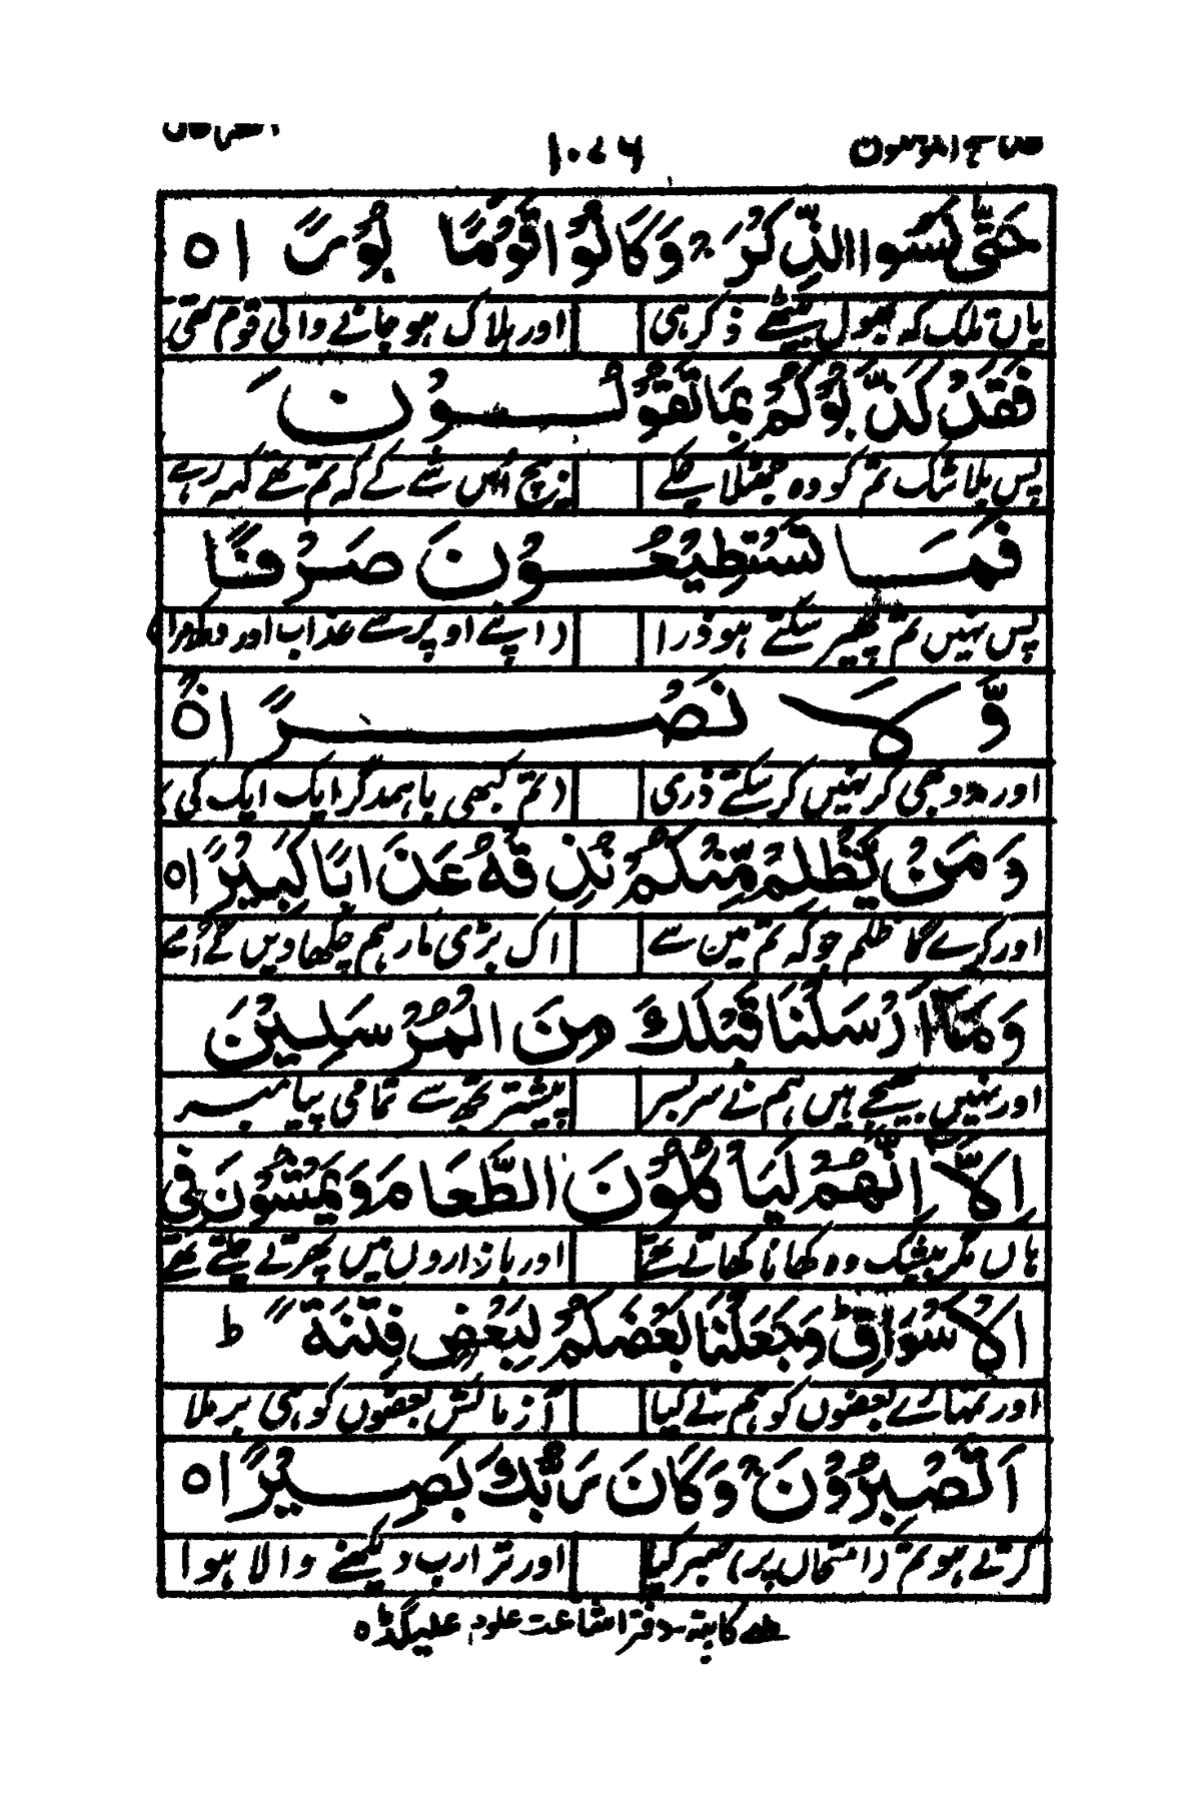 ۱۰۷۶
حَتّٰى نَسُوا الذِّكْرَ ۚ وَكَانُوْا قَوْمًا بُوْرًا ۝
یاں تلک کہ بھول بیٹھے ذکر ہی اور ہلاک ہو جانے والی قوم تھی
فَقَدْ كَذَّبُوْكُمْ بِمَا تَقُوْلُوْنَ
پس بلا شک تم کو وہ جھٹلا چکے بیچ اُس شے کے کہ تم تھے کہہ رہے
فَمَا تَسْتَطِيْعُوْنَ صَرْفًا
پس نہیں تم پھیر سکتے ہو ذرا (اپنے اوپر سے عذاب اور
وَّلَا نَصْرًا ۝
اور مدد بھی کر نہیں کر سکتے ذری (تم کبھی باہمدگر ایک ایک کی
وَمَنْ يَّظْلِمْ مِّنْكُمْ نُذِقْهُ عَذَابًا كَبِيْرًا ۝
اور کرے گا ظلم جو کہ تم میں سے اک بڑی مار ہم چکھا دیں گے اُسے
وَمَآ اَرْسَلْنَا قَبْلَكَ مِنَ الْمُرْسَلِيْنَ
اور نہیں بھیجے ہیں ہم نے سربسر پیشتر تجھ سے تمامی پیامبر
اِلَّآ اِنَّهُمْ لَيَاْكُلُوْنَ الطَّعَامَ وَيَمْشُوْنَ فِي
ہاں مگر بیشک وہ کھانا کھاتے تھے اور بازاروں میں پھرتے چلتے تھے
الْاَسْوَاقِ ۭ وَجَعَلْنَا بَعْضَكُمْ لِبَعْضٍ فِتْنَةً ۭ
اور تمہارے بعضوں کو ہم نے کیا آزمائش بعضوں کو ہی برملا
اَتَصْبِرُوْنَ ۚ وَكَانَ رَبُّكَ بَصِيْرًا ۝
کرتے ہو تم (امتحاں پر) صبر کیا اور ترا رب دیکھنے والا ہوا
ملنے کا پتہ۔ دفتر اشاعت علوم علیگڈہ